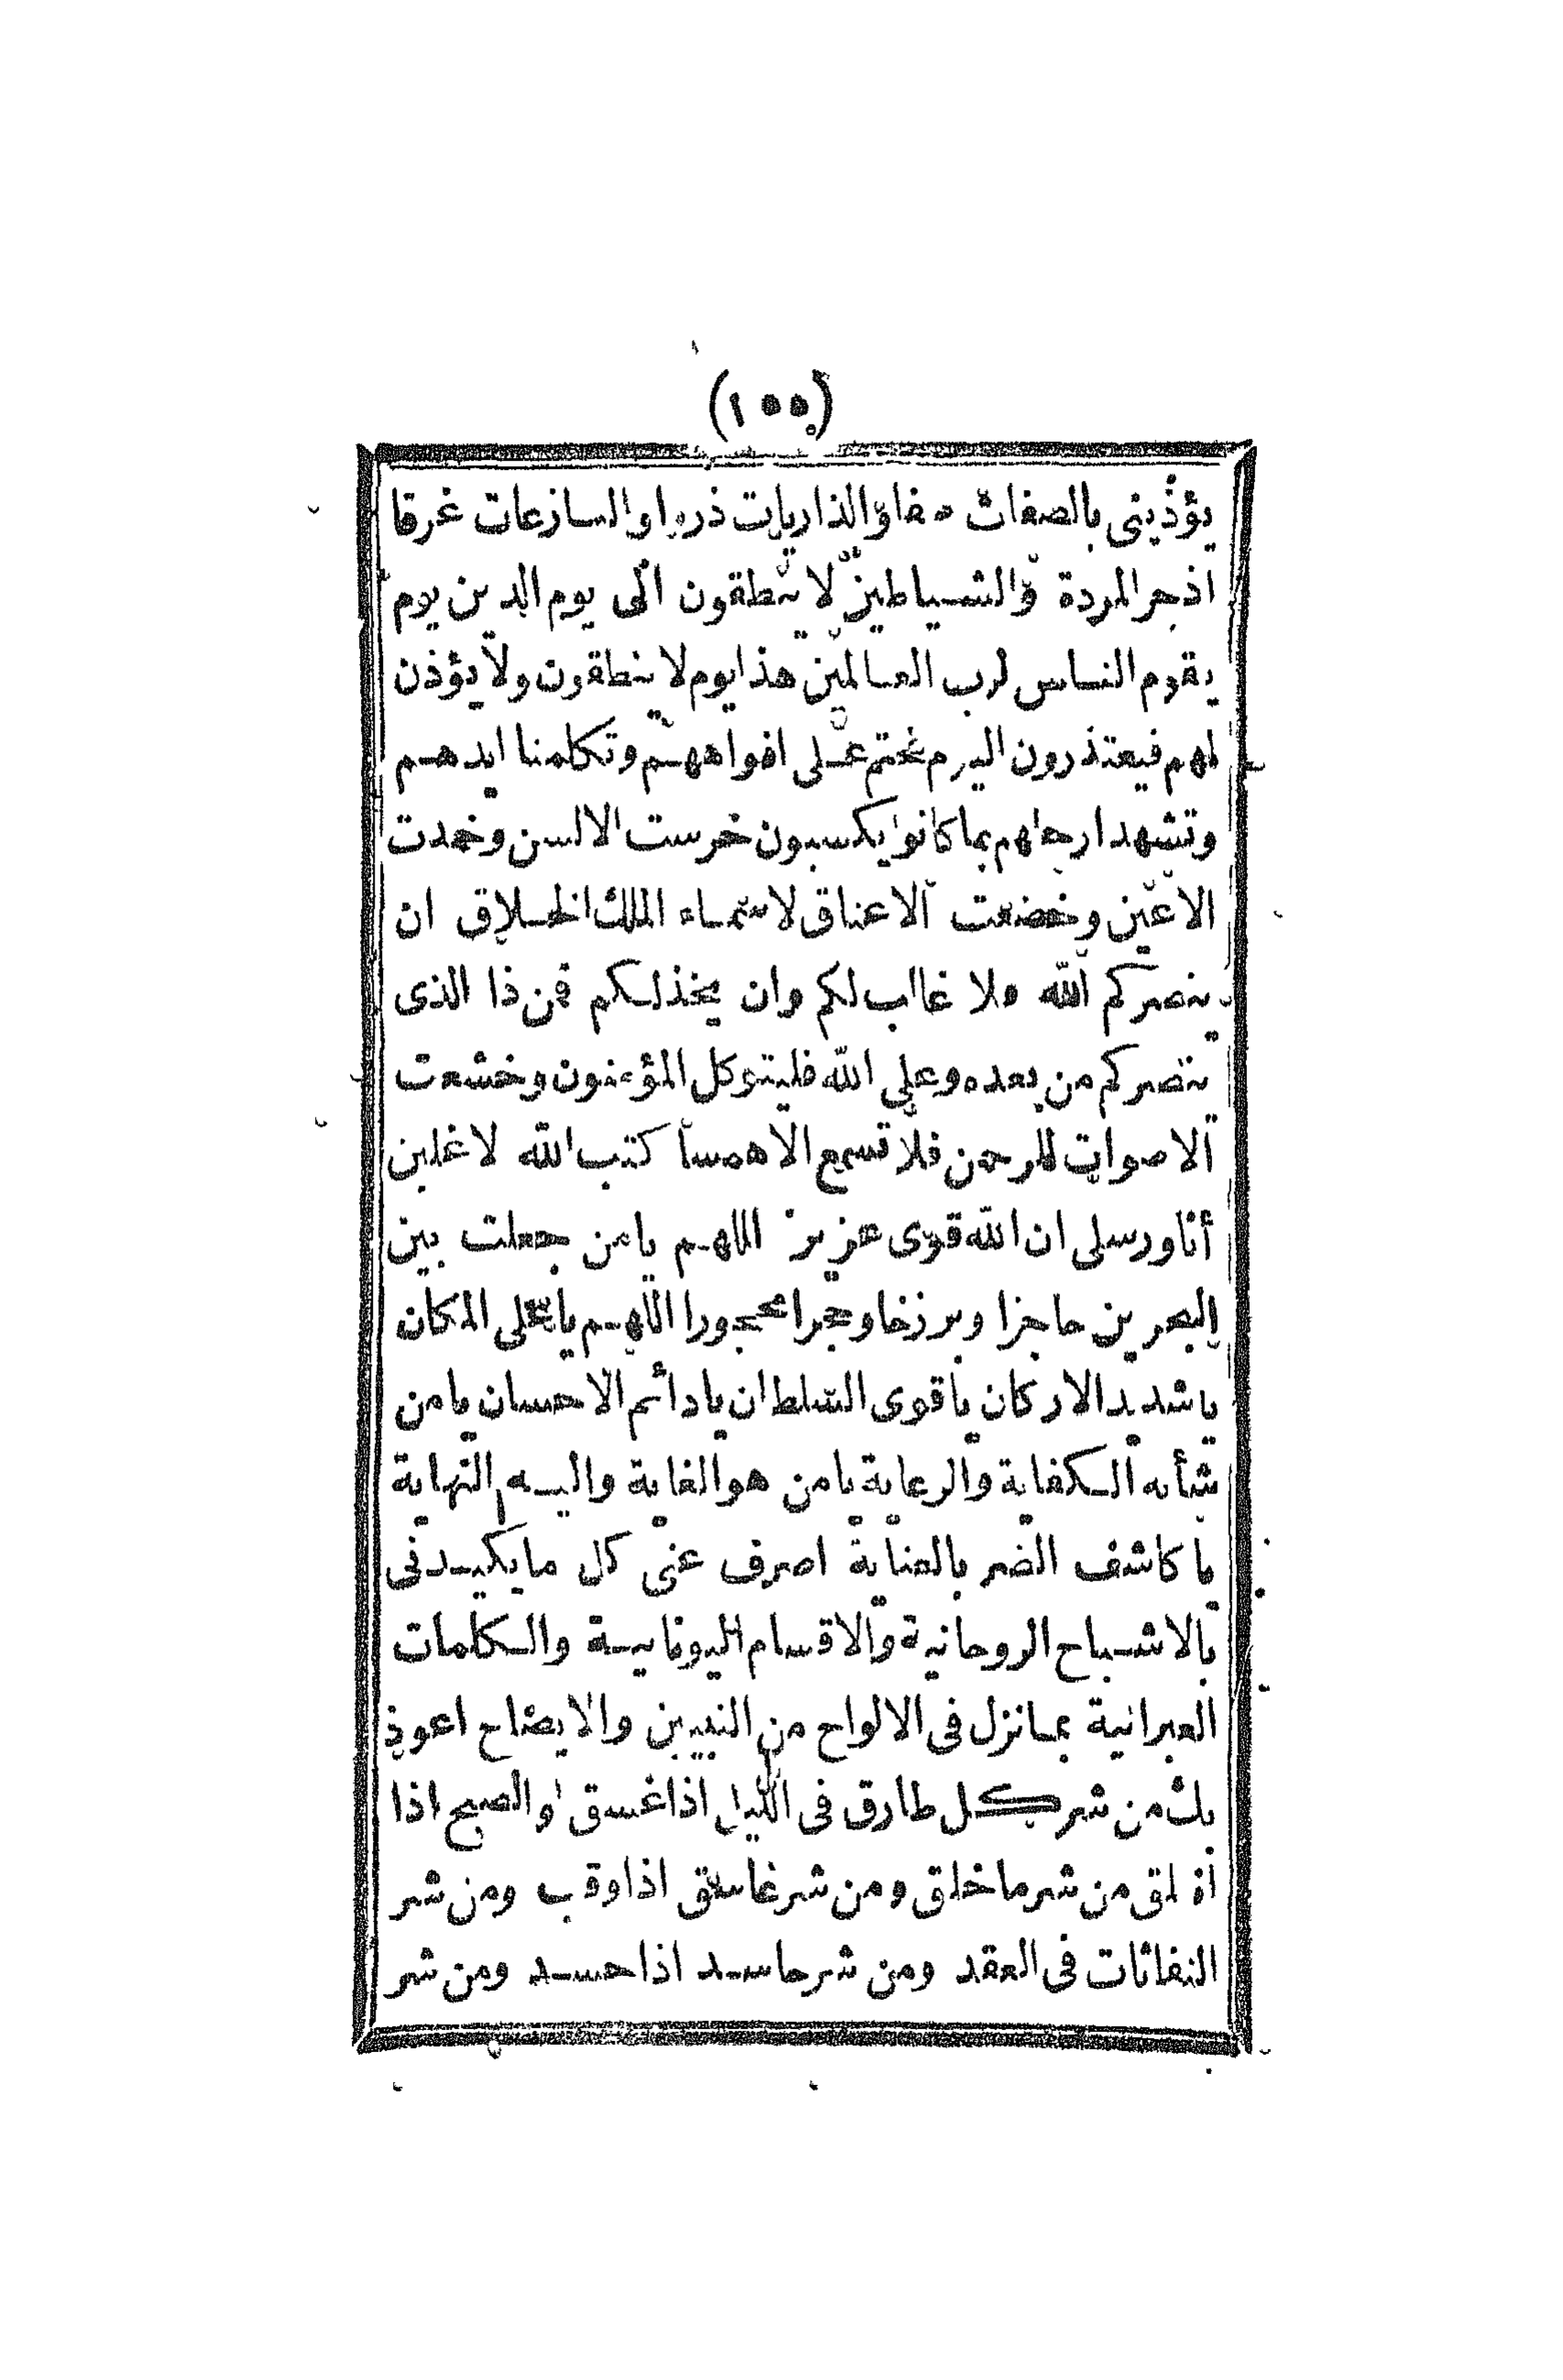 (١٥٥)
يؤذينى بالصفات صفاو الذاريات ذروا والنازعات غرقا
ازجر المردة والشياطين لا ينطقون الى يوم الدين يوم
يقوم الناس لرب العالمين هذا يوم لا ينطقون ولا يؤذن
لهم فيعتذرون اليوم نختم على افواههم وتكلمنا ايديهم
وتشهد ارجلهم بما كانوا يكسبون خرست الالسن وخمدت
الاعين وخضعت الاعناق لاسماء الملك الخلاق ان
ينصركم الله فلا غالب لكم وان يخذلكم فمن ذا الذى
ينصركم من بعده وعلى الله فليتوكل المؤمنون وخشعت
الاصوات للرحمن فلا تسمع الا همسا كتب الله لاغلبن
أنا ورسلى ان الله قوى عزيز اللهم يا من جعلت بين
البحرين حاجزا وبرزخا وحجرا محجورا اللهم يا على المكان
يا شديد الاركان يا قوى السلطان يا دائم الاحسان يا من
شأنه الكفاية والرعاية يا من هو الغاية واليه النهاية
يا كاشف الضر بالعناية اصرف عنى كل ما يكيدنى
بالاشباح الروحانية والاقسام اليونانية والكلمات
العبرانية بما نزل فى الالواح من النبيين والايضاح اعوذ
بك من شر كل طارق فى الليل اذا غسق والصبح اذا
انفلق من شر ما خلق ومن شر غاسق اذا وقب ومن شر
النفاثات فى العقد ومن شر حاسد اذا حسد ومن شر